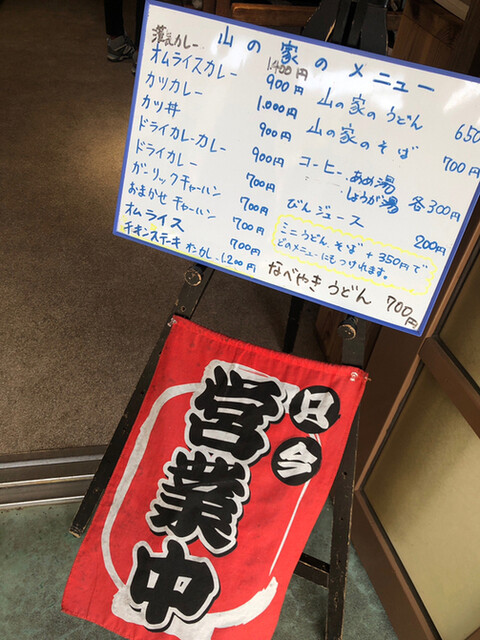 山の家のメニュー
カレー 1.400円
オムライスカレー 900円
カツカレー 1.000円
カツ丼 900円
ドライカレーカレー 900円
ドライカレー 700円
ガーリックチャーハン 700円
おまかせチャーハン 700円
オムライス 700円
チキンステーキオンカレ. 1.200円
山の家のうどん 650
山の家のそば 700円
コーヒー.あめ湯
しょうが湯 各300円
びんジュース 200円
ミニうどん.そば+350円で
どのメニューにもつけれます。
なべやきうどん 700円
只今
営業中